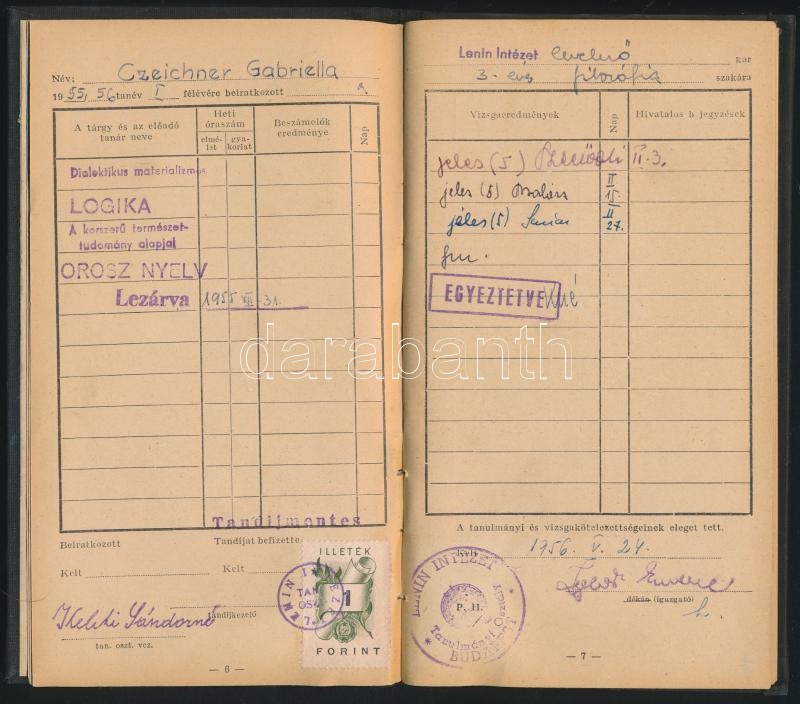 Név: Czeichner Gabriella
1955/56 tanév I félévére beiratkozott
A tárgy és az előadó tanár neve
Heti óraszám
elmélet
gyakorlat
Beszámolók eredménye
Nap
Dialektikus materializmus
LOGIKA
A korszerű természet-
tudomány alapjai
OROSZ NYELV
Lezárva 1955 XII. 31.
Tandíjmentes
Beiratkozott
Tandíjat befizette
Kelt
Kelt
Keleti Sándorné
tandíjkezelő
tan. oszt. vez.
ILLETÉK
1
FORINT
LENIN INTÉZET
TAN
OSZT
— 6 —
Lenin Intézet levelező kar
3. éves filozófia szakára
Vizsgaeredmények
Nap
Hivatalos bejegyzések
jeles (5) II. 3.
jeles (5) II 15.
jeles (5) II 27.
EGYEZTETVE
A tanulmányi és vizsgakötelezettségeinek eleget tett.
Kelt 1956. V. 24.
LENIN INTÉZET
P. H.
Tanulmányi Osztály
* BUDAPEST *
dékán (igazgató)
h.
— 7 —
darabanth